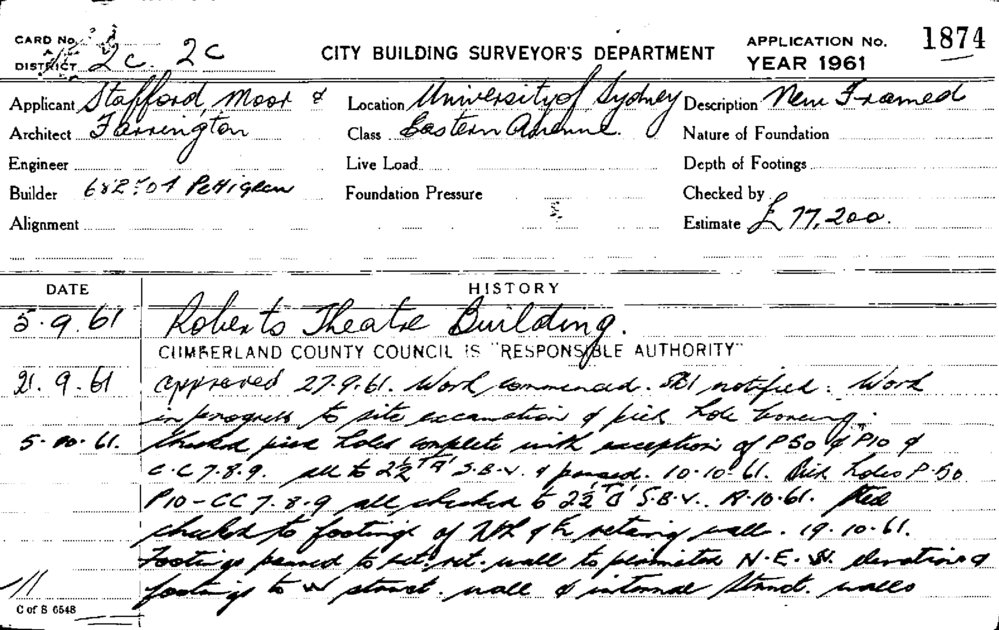 CARD No.
DISTRICT 2c. 2c
CITY BUILDING SURVEYOR'S DEPARTMENT
APPLICATION No. 1874
YEAR 1961
Applicant Stafford, Moor & Location University of Sydney Description New Framed
Architect Farrington Class Eastern Avenue. Nature of Foundation
Engineer Live Load Depth of Footings
Builder Pettigrew Foundation Pressure Checked by
Alignment Estimate £77,200.
DATE HISTORY
5.9.61 Roberts Theatre Building.
CUMBERLAND COUNTY COUNCIL IS "RESPONSIBLE AUTHORITY"
21.9.61 approved 27.9.61. Work commenced. notified. Work
in progress to site excavation & pier hole boring.
5.10.61. Checked pier holes complete with exception of P50 & P10 &
C.C 7.8.9. all to S.B.V. & passed. 10.10.61. holes P.50
P10-CC 7.8.9 all checked to S.B.V. 10.61.
checked to footings of retaining wall. 19.10.61.
Footings passed to ret. wall to N.E. elevation &
footings to struct. wall & internal struct. walls
C of S 6548